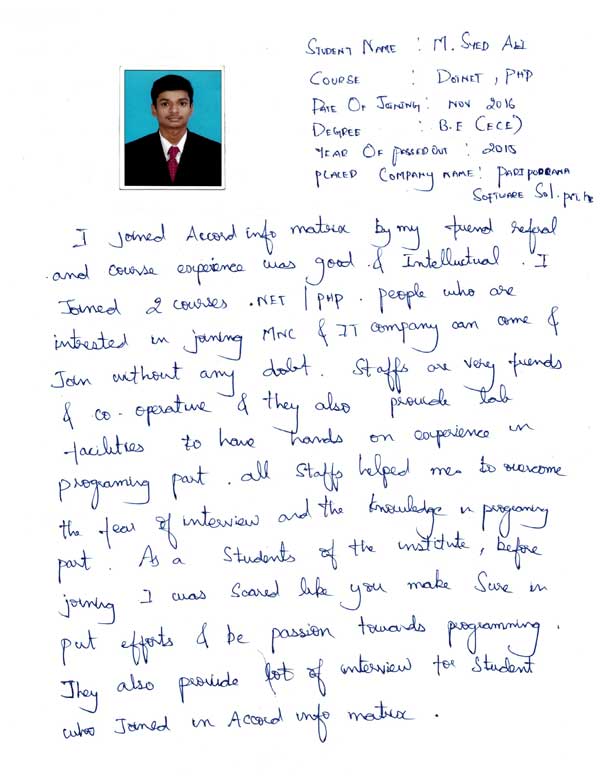 STUDENT NAME : M. SYED ALI
COURSE : DOTNET , PHP
DATE OF JOINING : NOV 2016
DEGREE : B.E (ECE)
YEAR OF PASSED OUT : 2015
PLACED COMPANY NAME : PARIPOORANA
SOFTWARE Sol. pvt. ltd
I joined Accord info matrix by my friend referal
and course experience was good & Intellectual . I
Joined 2 courses .NET / PHP . people who are
intrested in joining MNC & IT company can come &
Join without any dobt . Staffs are very friends
& co-operative & they also provide lab
facilities to have hands on experience in
programing part . all Staffs helped me to overcome
the fear of interview and the knowledge in programing
part . As a Students of the institute , before
joining I was Scared like you make Sure in
put efforts & be passion towards programming .
They also provide lot of interview for Student
who Joined in Accord info matrix .